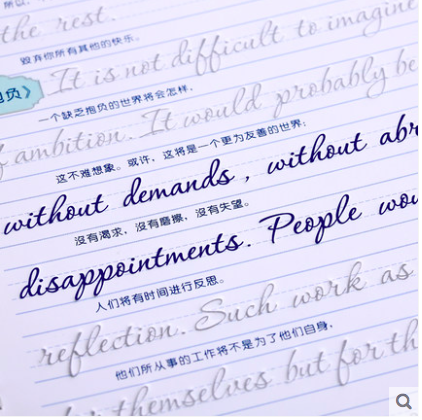 所以,
the rest.
毁弃你所有其他的快乐。
It is not difficult to imagine
负》
一个缺乏抱负的世界将会怎样,
ambition. It would probably be
这不难想象。或许, 这将是一个更为友善的世界:
without demands, without abr
没有渴求, 没有磨擦, 没有失望。
disappointments. People wou
人们将有时间进行反思。
reflection. Such work as
他们所从事的工作将不是为了他们自身,
themselves but for th